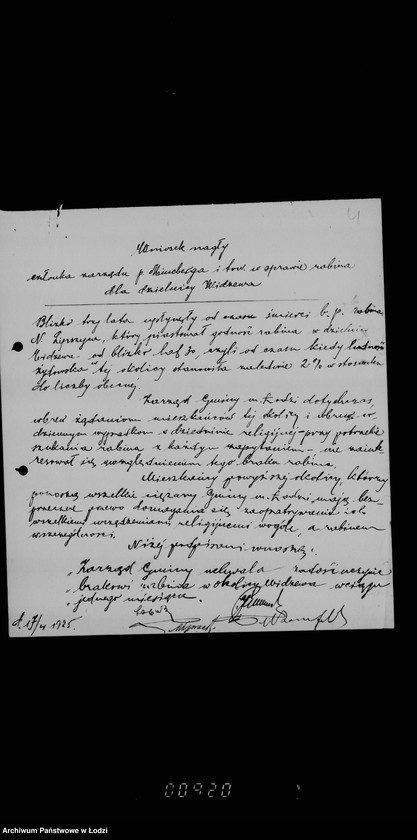 4
Wniosek nagły
członka zarządu p. Mincberga i tow. w sprawie rabina
dla dzielnicy Widzewa
Blisko trzy lata upłynęły od czasu śmierci b. p. rabina
N. który piastował godność rabina w dzielnicy
Widzewa od blisko lat 30, czyli od czasu kiedy ludność
żydowska tej okolicy stanowiła zaledwie 2% w stosunku
do liczby obecnej.
Zarząd Gminy m. Łodzi dotychczas,
wbrew żądaniom mieszkańców tej okolicy i
wypadkom w dziedzinie religijnej przy potrzebie
szukania rabina z każdym zapytaniem – nie zainte-
resował się uwzględnieniem tego braku rabina.
Mieszkańcy powyższej okolicy, którzy
ponoszą wszelkie ciężary Gminy m. Łodzi, mają bez-
sporne prawo domagania się, zaopatrywania ich
wszelkiemi urządzeniami religijnemi wogóle, a rabinem
w szczególności.
Niżej podpisani wnoszą:
„Zarząd Gminy uchwala zadość uczynić
„brakowi rabina w okolicy Widzewa w ciągu
„jednego miesiąca.
Ł. 17/4 1925.
00920
Archiwum Państwowe w Łodzi